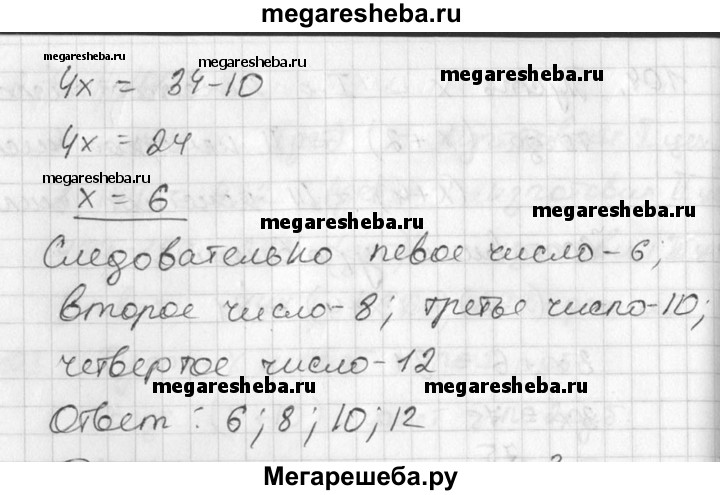 megaresheba.ru
megaresheba.ru
megaresheba.ru
megaresheba.ru
4x = 34-10
4x = 24
megaresheba.ru
x = 6
megaresheba.ru
megaresheba.ru
Следовательно певое число - 6;
второе число - 8; третье число - 10;
четвертое число - 12
megaresheba.ru
megaresheba.ru
Ответ: 6; 8; 10; 12
Мегарешеба.ру